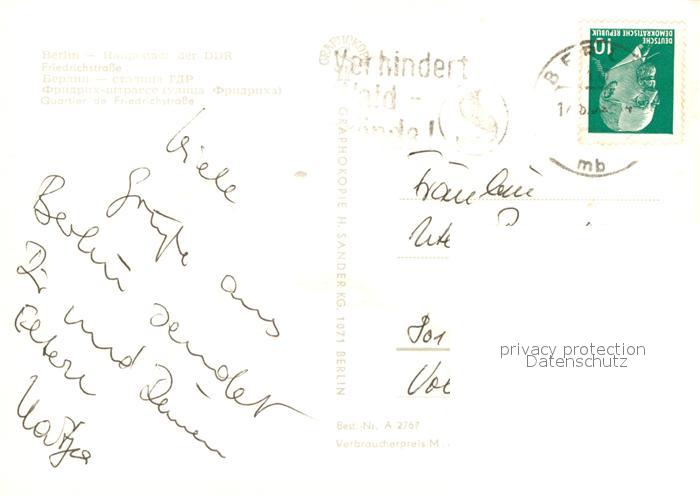 Berlin — Hauptstadt der DDR
Friedrichstraße
Берлин — столица ГДР
Фридрих-штрассе (улица Фридриха)
Quartier de Friedrichstraße
Viele
Grüße aus
Berlin sendet
Dir und Deinen
Eltern
Katja
GRAPHOKOPIE H. SANDER KG, 1071 BERLIN
Verhindert
Wald-
brände!
DEUTSCHE
DEMOKRATISCHE
REPUBLIK
10
BERL
mb
Fräulein
Ute
privacy protection
Datenschutz
Best.-Nr. A 2767
Verbraucherpreis M